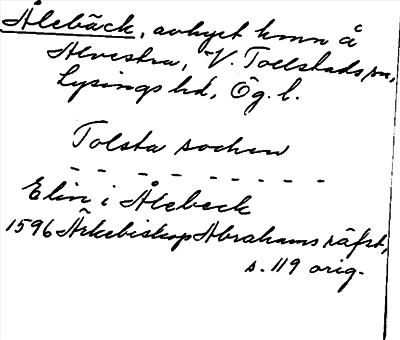 Ålebäck, avhyst hmn å
Alvestra, V. Toelstads sn,
Lysings hd, Ög. l.
Tolsta sochen
Elin i Ålebeck
1596 Ärkebiskop Abrahams räfst,
s. 119 orig.